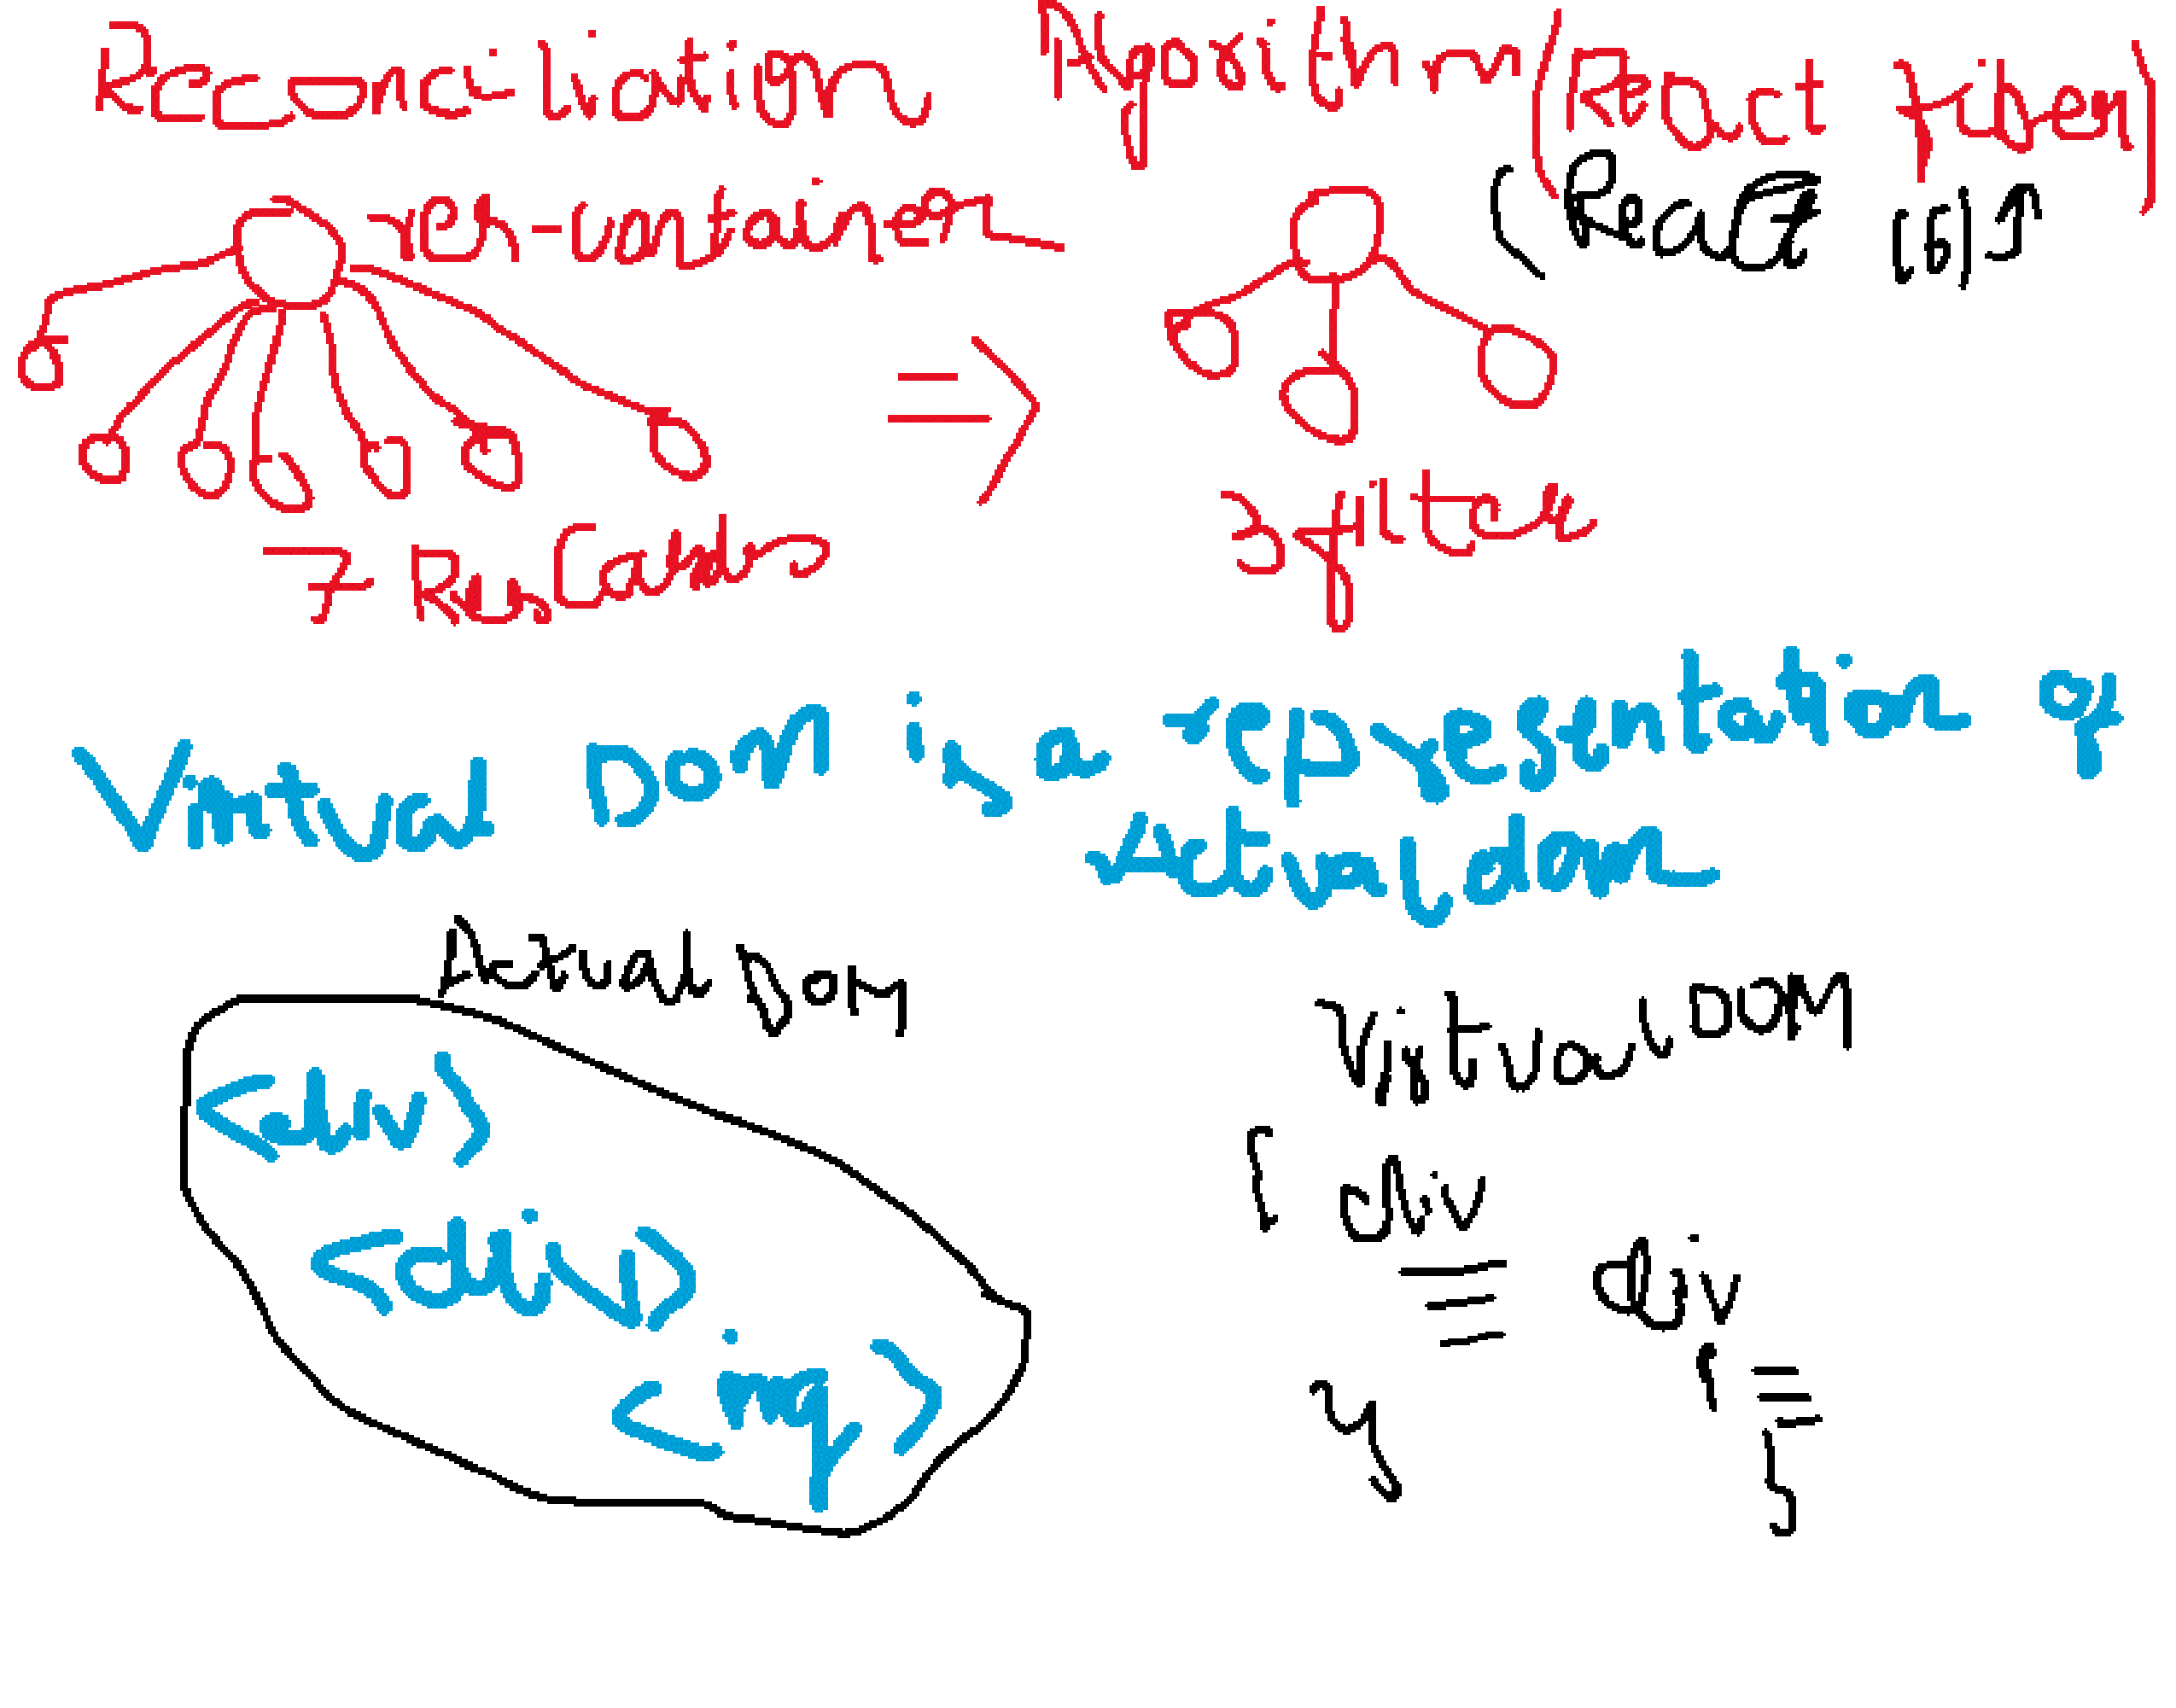 Reconciliation Algorithm (React fiber)
(React 16) ↑
res-container
7 ResCards
3 filter
Virtual DOM is a representation of
Actual dom
Actual DOM
Virtual DOM
<div>
<div>
<img>
{ div
div
{
}
}